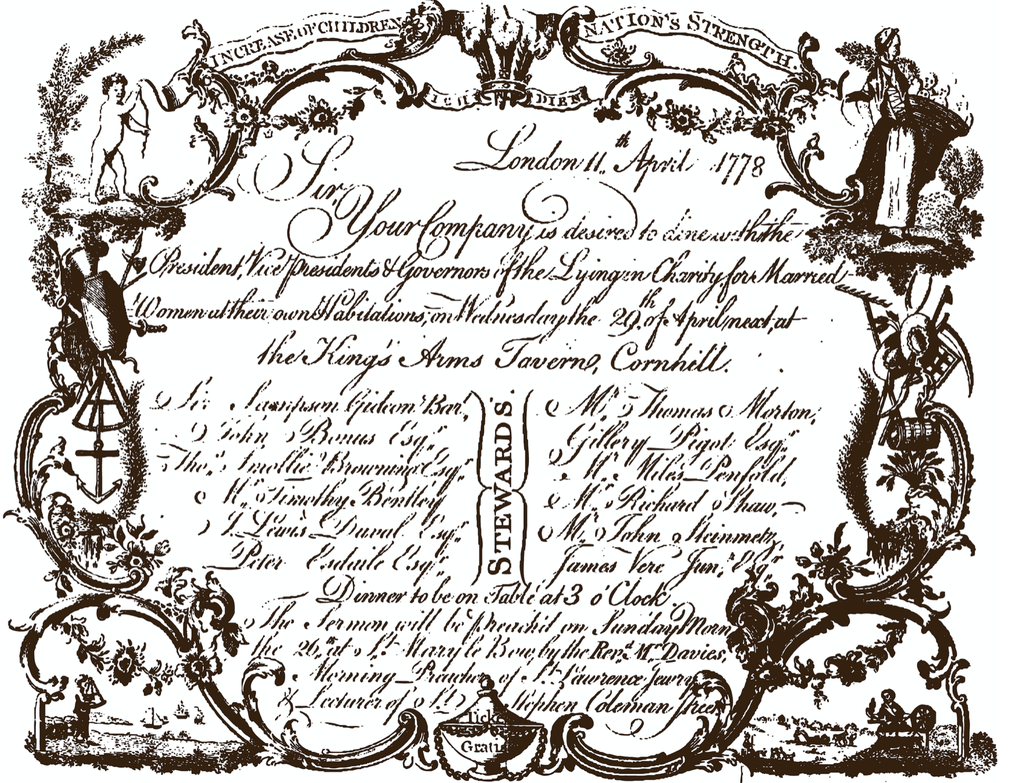 INCREASE OF CHILDREN A NATION'S STRENGTH.
ICH DIEN
London 11th April 1778
Sir,
Your Company is desired to dine with the
President, Vice Presidents & Governors of the Lying in Charity for Married
Women at their own Habitations, on Wednesday the 29th of April next, at
the King's Arms Tavern, Cornhill.
STEWARDS.
Sir Sampson Gideon Bart,
John Bonus Esqr
Thos Smollie Browning Esqr
Mr Timothy Bentley
J. Lewis Duval Esqr
Peter Esdaile Esqr
Mr Thomas Morton,
Gillery Pigot Esqr
Mr Miles Penfold,
Mr Richard Shaw,
Mr John Steinmetz,
James Vere Junr Esqr
Dinner to be on Table at 3 o'Clock
The Sermon will be preach'd on Sunday Morng
the 26th at St Mary le Bow, by the Revd Mr Davies,
Morning Preacher of St Lawrence Jewry
& Lecturer of St Stephen Coleman Street
Ticket
Gratis